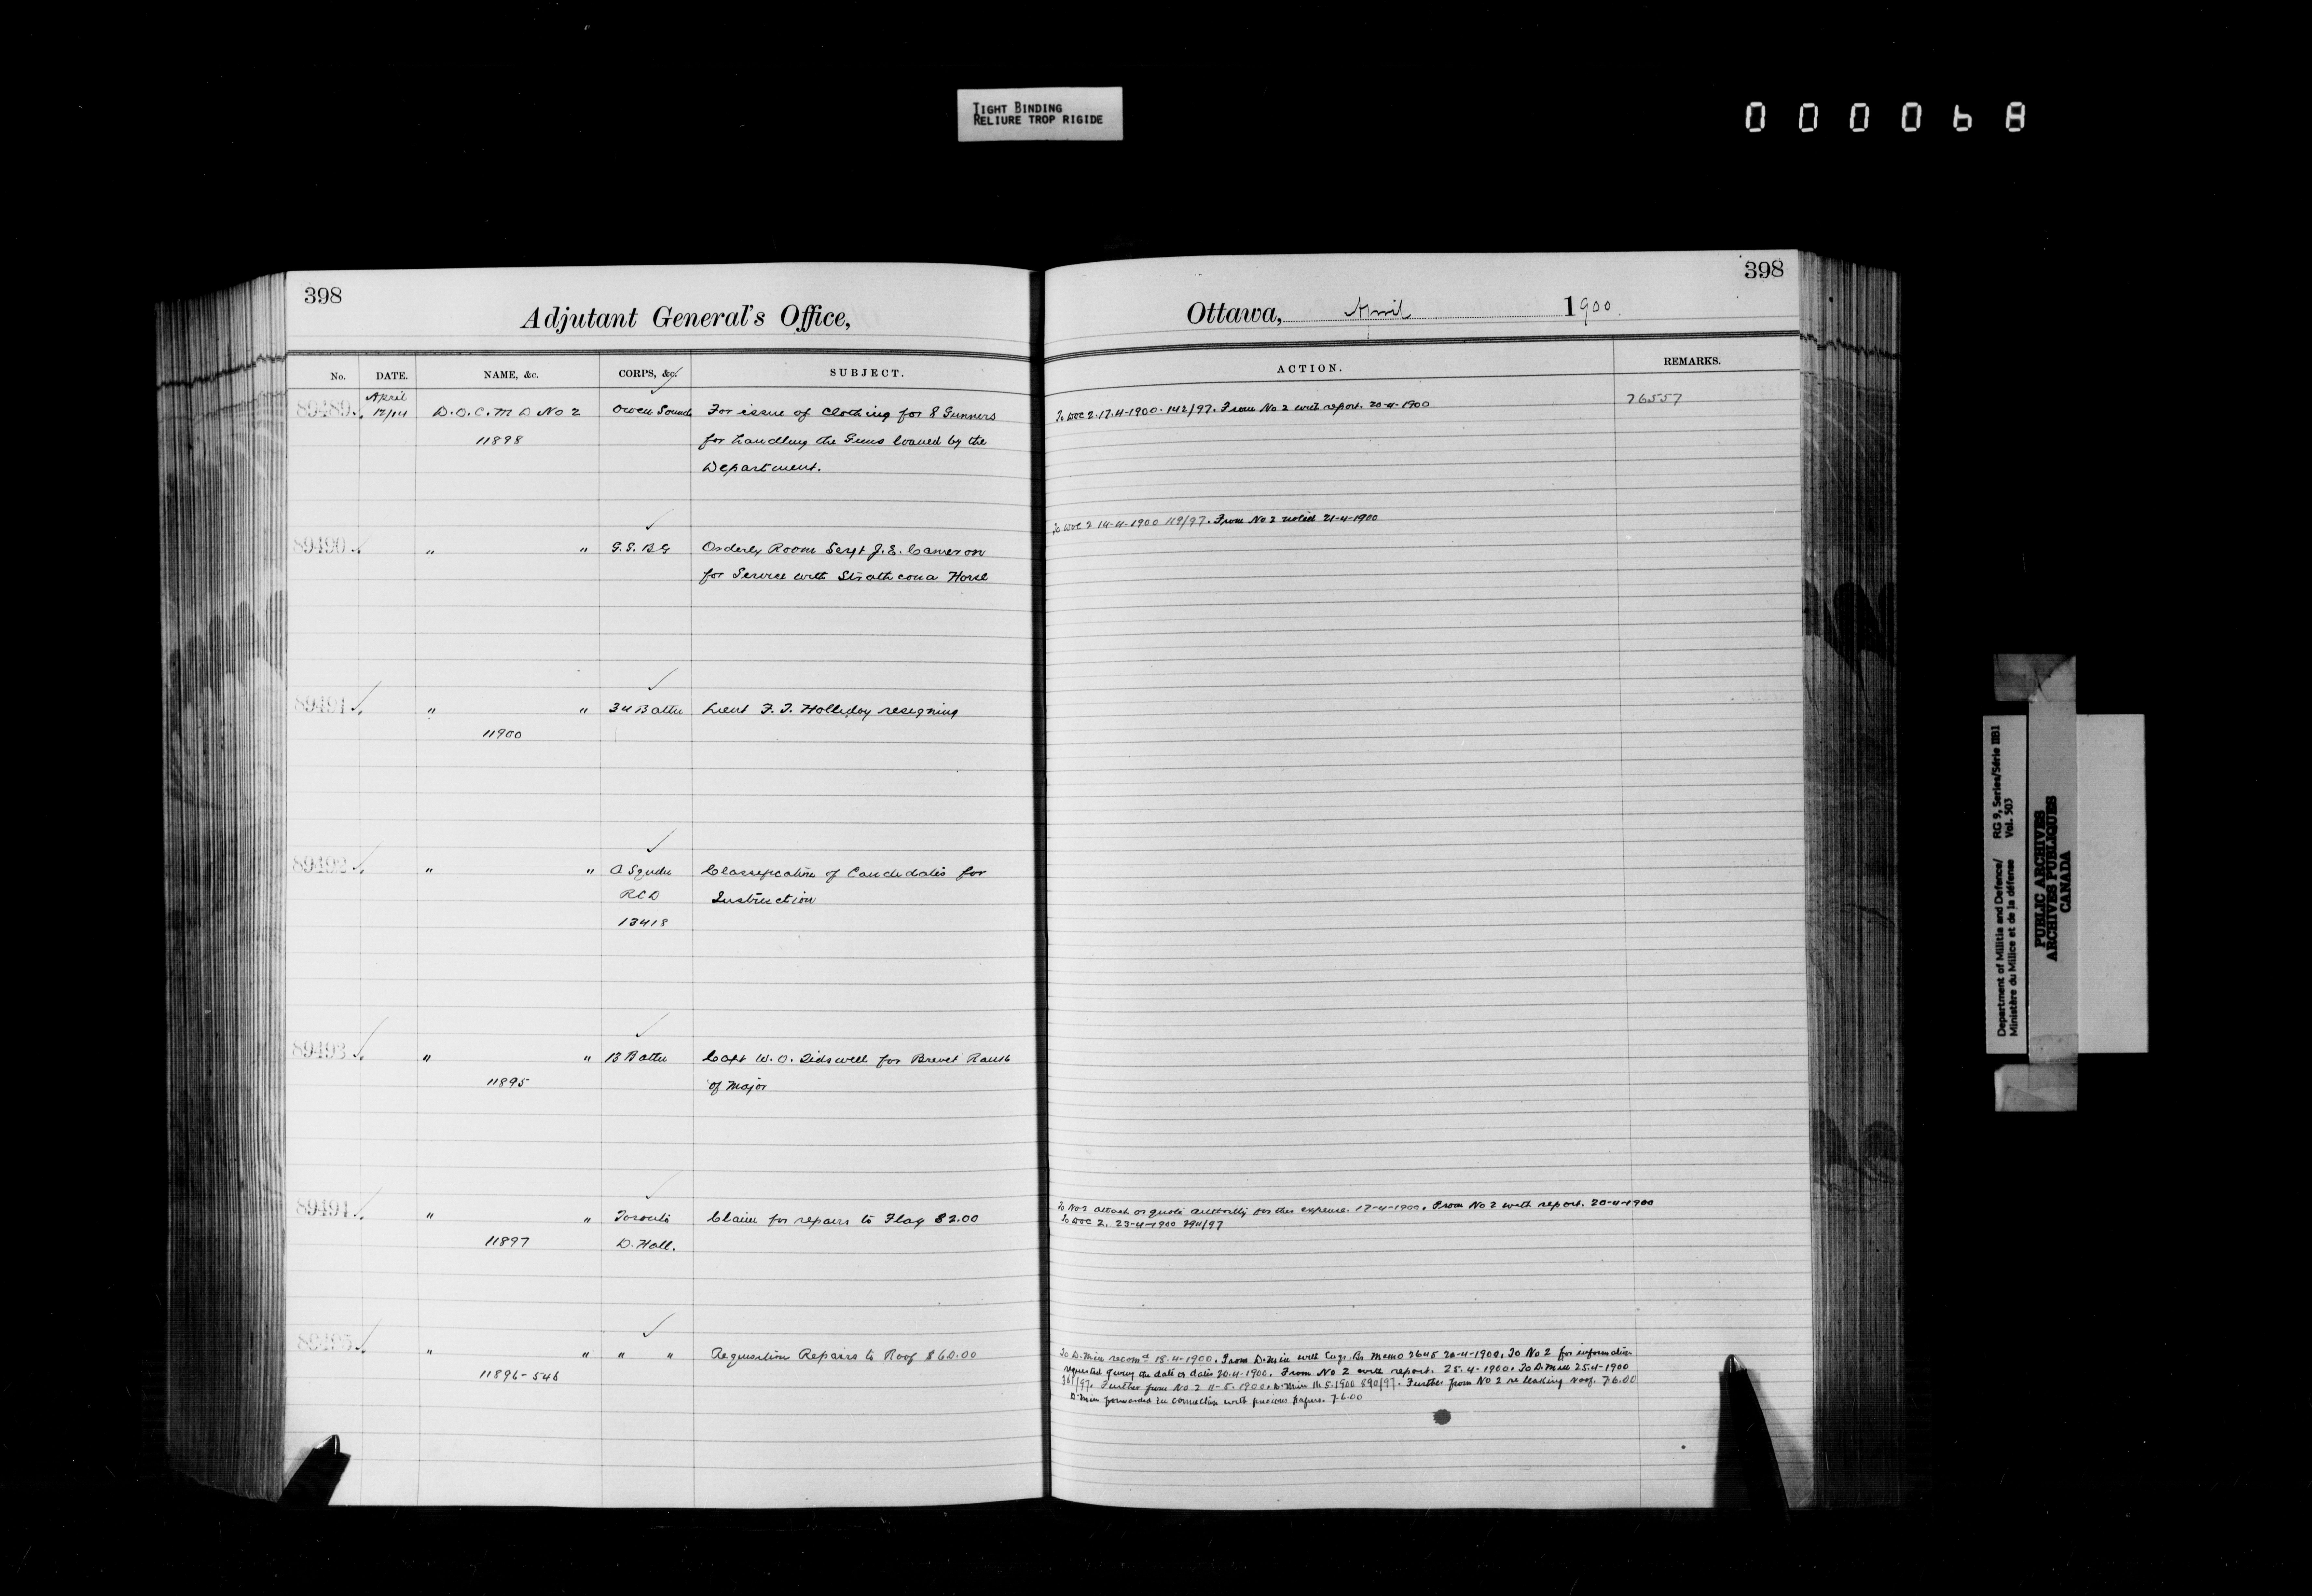 TIGHT BINDING
RELIURE TROP RIGIDE
000068
398
Adjutant General's Office,
No. DATE. NAME, &c. CORPS, &c. SUBJECT.
April
89489 12/14 D.O.C. M D No 2 Owen Sound For issue of Clothing for 8 Gunners
11898 for handling the Guns loaned by the
Department.
89490 " " G.G.B.G Orderly Room Sergt J.E. Cameron
for Service with Strathcona Horse
89491 " " 34 Battn Lieut F.J. Holliday resigning
11900
89492 " " A Squdn Classification of Candidates for
RCD Instruction
13418
89493 " " 13 Battn Capt W.O. Tidswell for Brevet Rank
11895 of Major
89494 " " Toronto Claim for repairs to Flag $2.00
11897 D. Hall.
89495 " " " " Requisition Repairs to Roof $60.00
11896-546
398
Ottawa, April 1900
ACTION. REMARKS.
To DOC 2. 17-4-1900. 142/97. From No 2 with report. 20-4-1900 76557
To DOC 2 14-4-1900 119/97. From No 2 noted 21-4-1900
To No 2 attach or quote authority for this expense. 17-4-1900. From No 2 with report. 20-4-1900
To DOC 2. 23-4-1900 294/97
To D.Min recomd 18-4-1900. From D.Min with Engr Br. Memo 2645 20-4-1900. To No 2 for information
requested giving the date or dates 20-4-1900. From No 2 with report. 25-4-1900. To D.Min 25-4-1900
361/97. Further from No 2 11-5-1900. D.Min 14.5.1900 890/97. Further from No 2 re leaking roof. 7-6-00
D.Min forwarded in connection with previous papers. 7-6-00
Department of Militia and Defence/ RG 9, Series/Série IIB1
Ministère du Milice et de la défense Vol. 503
PUBLIC ARCHIVES
ARCHIVES PUBLIQUES
CANADA